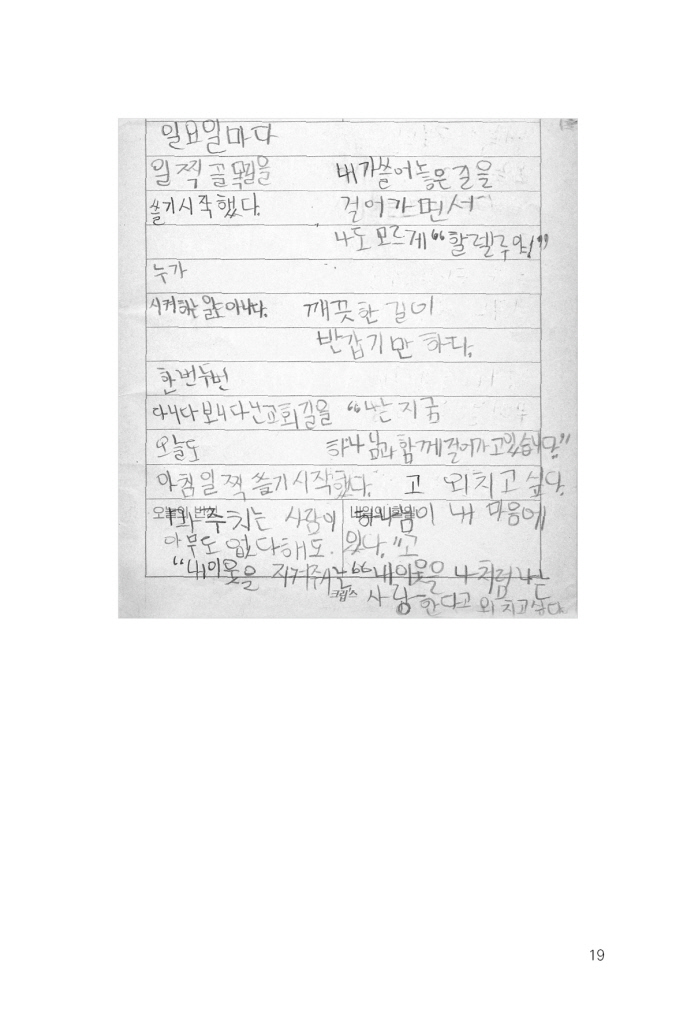 일요일마다
일찍 골목길을
내가쓸어놓은길을
쓸기시작했다.
걸어가면서
나도 모르게 "할렐루야!"
누가
시켜하는일도아니다.
깨끗한길이
반갑기만 하다.
한번두번
다니다보니다닌교회길을
"나는 지금
오늘도
하나님과함께걸어가고있습니다"
아침일찍 쓸기시작했다.
고 외치고싶다.
마주치는 사람이
하나님이 내 마음에
아무도 없다해도.
있다."고
"내이웃을 지켜주시는
"내이웃을 나처럼 나는
크립스
사랑한다고 외치고싶다.
19